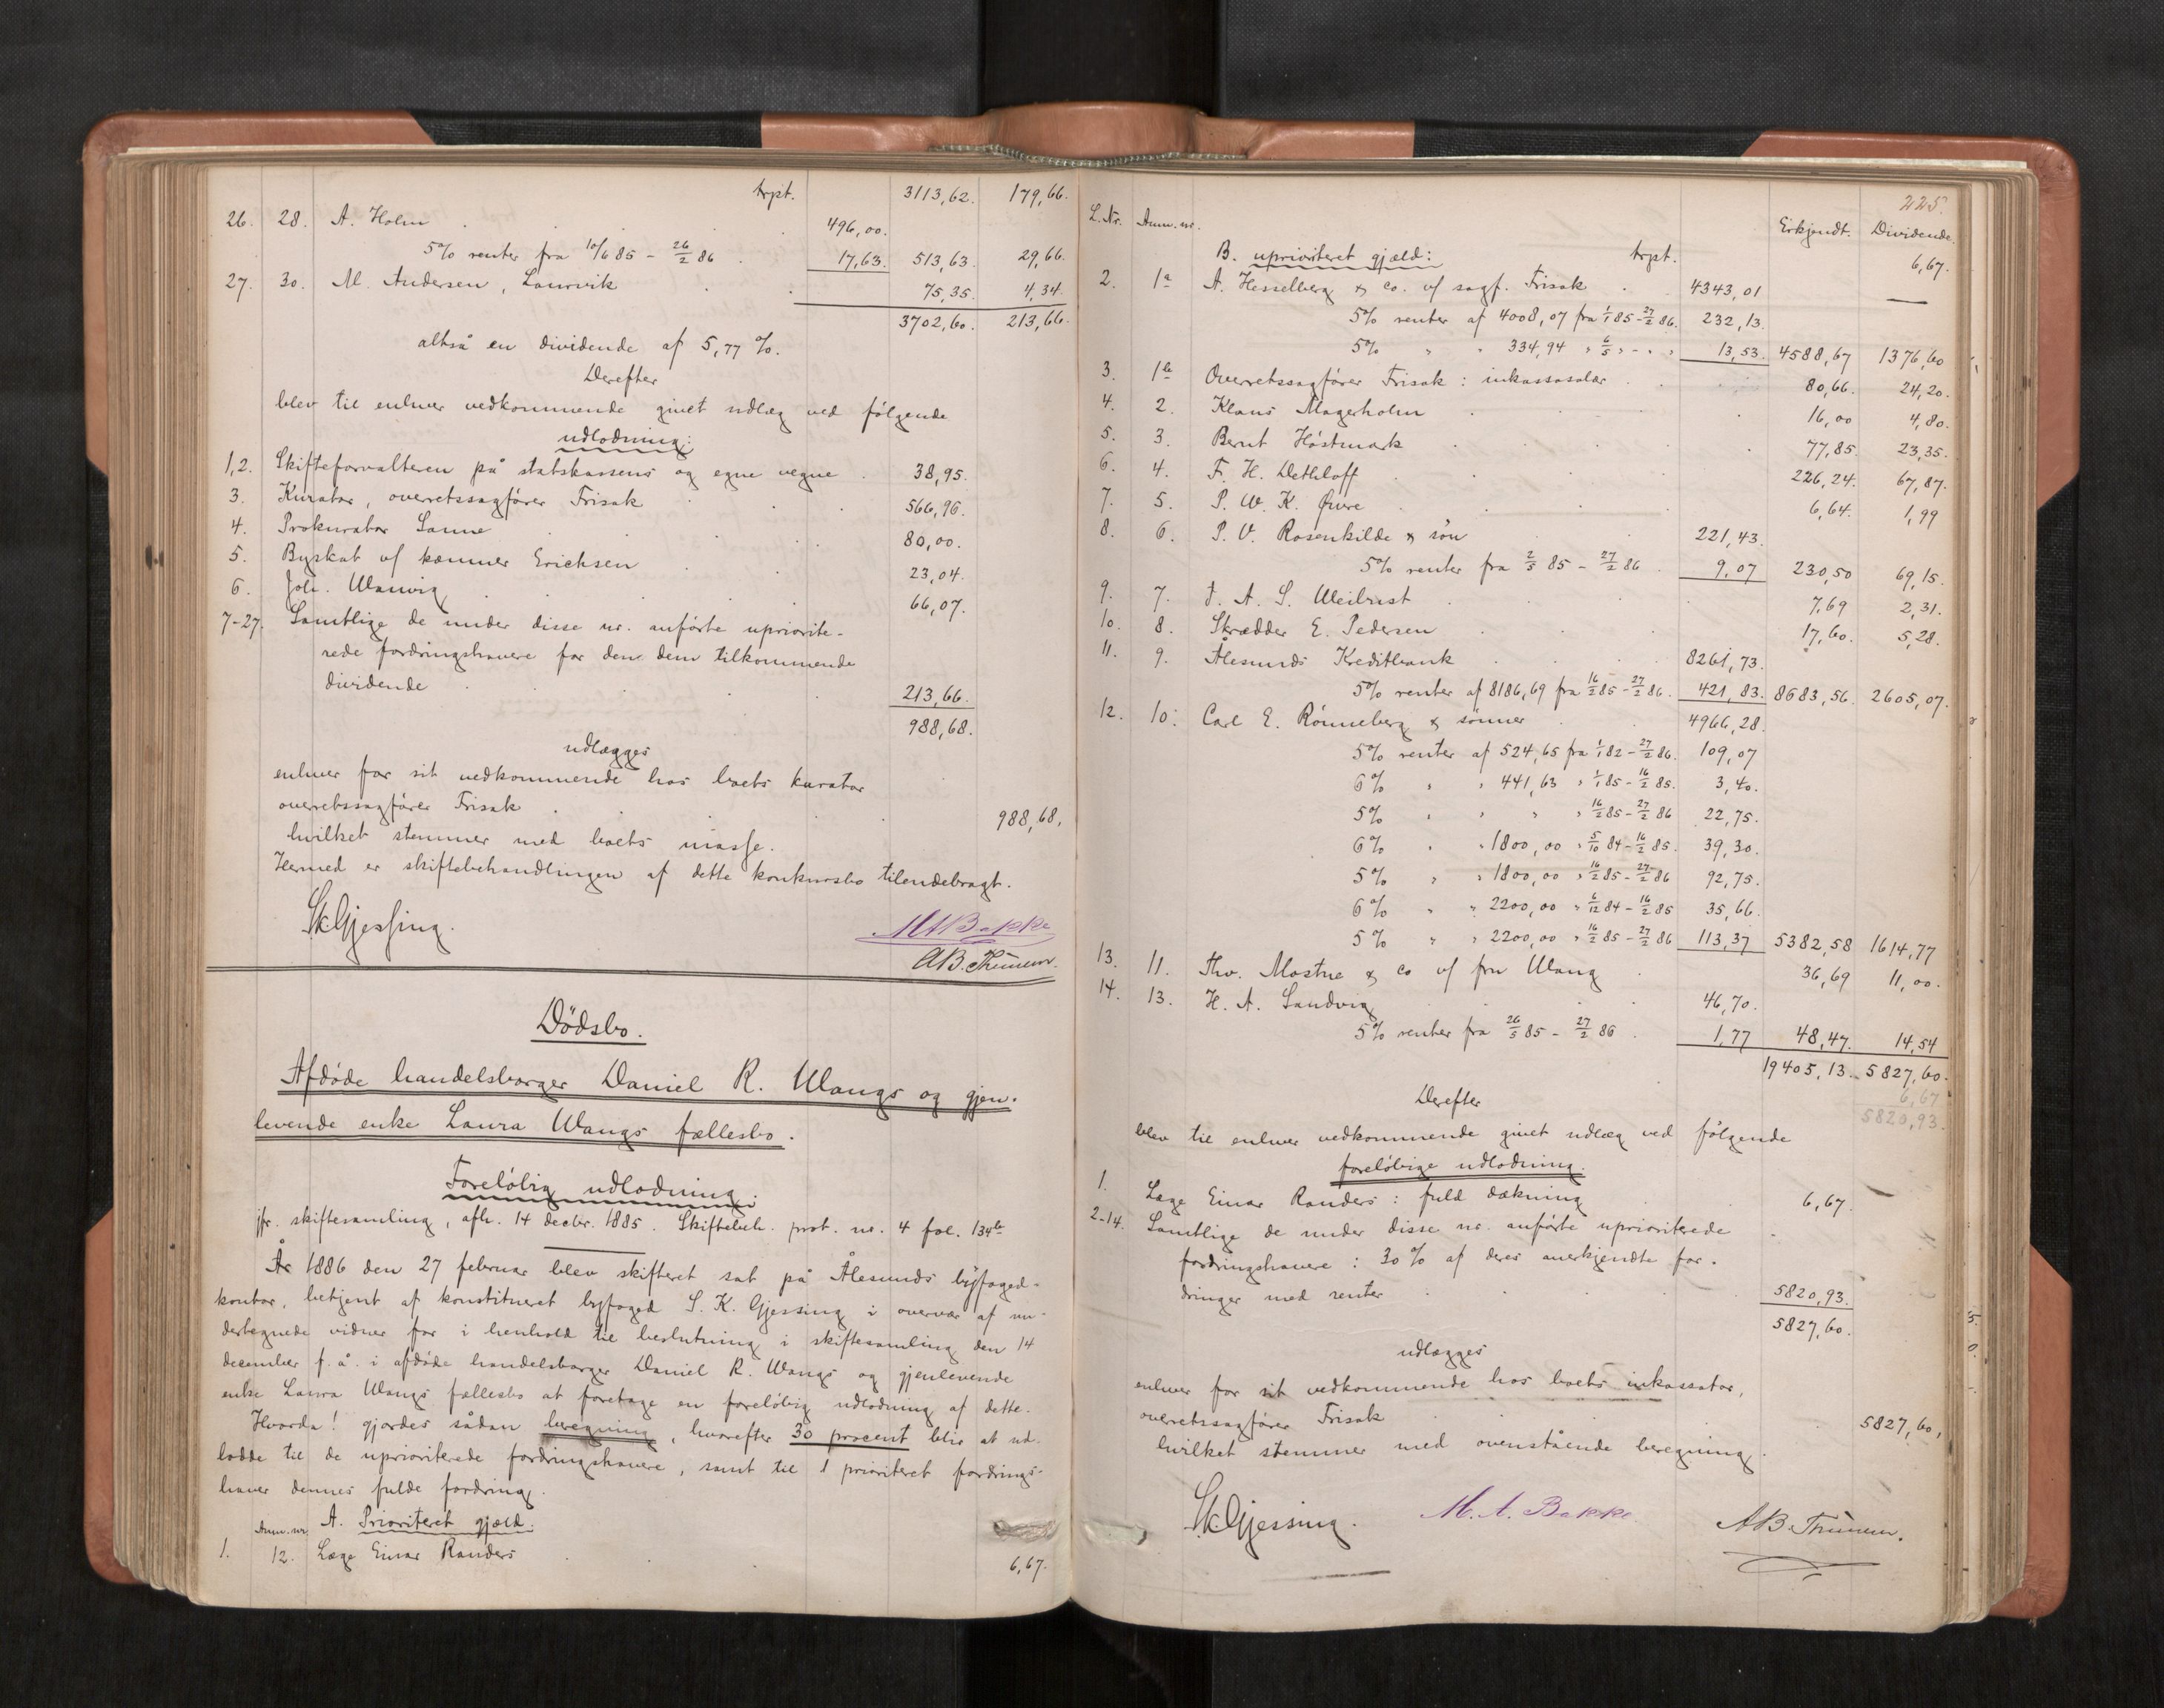 trpt. 3113,62. 179,66.
26. 28. A. Holm 496,00.
5% renter fra 10/6 85 - 26/2 86 17,63. 513,63. 29,66.
27. 30. M. Andersen, Laurvik 75,35. 4,34.
3702,60. 213,66.
altså en dividende af 5,77 %.
Derefter
blev til enhver vedkommende givet udlæg ved følgende
udlodning:
1,2. Skifteforvalteren på statskassens og egne vegne 38,95.
3. Kurator, overretssagfører Frisak 566,96.
4. Prokurator Sanne 80,00.
5. Byskat v/ kæmner Erichsen 23,04.
6. Joh. Wanvig 66,07.
7-27. Samtlige de under disse nr. anførte upriorite-
rede fordringshavere for den dem tilkommende
dividende 213,66.
988,68.
udlægges
enhver for sit vedkommende hos boets kurator
overretssagfører Frisak 988,68.
hvilket stemmer med boets masse.
Hermed er skiftebehandlingen af dette konkursbo tilendebragt.
SKGjessing. M A Bakke
A B. Thunem.
Dödsbo.
Afdøde handelsborger Daniel R. Wangs og gjen-
levende enke Laura Wangs fællesbo.
Foreløbig udlodning.
jfr. skiftesamling, afh. 14 decbr. 1885. Skiftebeh. prot. nr. 4 fol. 134b
År 1886 den 27 februar blev skifteret sat på Ålesunds byfoged-
kontor, betjent af konstitueret byfoged S. K. Gjessing i overvær af un-
dertegnede vidner for i henhold til beslutning i skiftesamling den 14
december f. å. i afdøde handelsborger Daniel R. Wangs og gjenlevende
enke Laura Wangs fællesbo at foretage en foreløbig udlodning af dette.
Hvorda! gjordes sådan beregning, hvorefter 30 procent blir at ud-
lodde til de uprioriterede fordringshavere, samt til 1 prioriteret fordrings-
haver dennes fulde fordring.
Anm. nr. A. Prioriteret gjæld.
1. 12. Læge Einar Randers 6,67.
225.
L. Nr. Anm. nr. Erkjendt. Dividende.
B. uprioriteret gjæld: trpt. 6,67.
2. 1a A. Hesselberg & co. v/ sagf. Frisak 4343,01 —
5% renter af 4008,07 fra 1/1 85 - 27/2 86. 232,13.
5% " " 334,94 " 6/5 " - " " 13,53. 4588,67 1376,60
3. 1b Overretssagfører Frisak: inkassosalær 80,66. 24,20.
4. 2. Klaus Magerholm 16,00 4,80.
5. 3. Bernt Høstmark 77,85. 23,35.
6. 4. F. H. Dethloff 226,24. 67,87.
7. 5. P. W. K. Øvre 6,64. 1,99
8. 6. P. V. Rosenkilde & søn 221,43.
5% renter fra 2/5 85 - 27/2 86 9,07 230,50 69,15.
9. 7. J. A. S. Weibust 7,69 2,31.
10. 8. Skrædder E. Pedersen 17,60. 5,28.
11. 9. Ålesunds Kreditbank 8261,73.
5% renter af 8186,69 fra 16/2 85 - 27/2 86. 421,83. 8683,56. 2605,07.
12. 10. Carl E. Rønneberg & sønner 4966,28.
5% renter af 524,65 fra 1/1 82 - 27/2 86. 109,07
6% " " 441,63 " 1/1 85 - 16/2 85. 3,40.
5% " " " " 16/2 85 - 27/2 86 22,75.
6% " " 1800,00 " 5/10 84 - 16/2 85. 39,30.
5% " " 1800,00 " 16/2 85 - 27/2 86 92,75.
6% " " 2200,00 " 6/12 84 - 16/2 85 35,66.
5% " " 2200,00 " 16/2 85 - 27/2 86 113,37 5382,58 1614,77
13. 11. Thv. Mostue & co v/ fru Wang 36,69 11,00.
14. 13. H. A. Sandvig 46,70.
5% renter fra 26/5 85 - 27/2 86 1,77 48,47. 14,54
19405,13. 5827,60.
6,67
5820,93.
Derefter
blev til enhver vedkommende givet udlæg ved følgende
foreløbige udlodning.
1. Læge Einar Randers: fuld dækning 6,67.
2-14. Samtlige de under disse nr. anførte upriorriterede
fordringshavere: 30% af deres anerkjendte for-
dringer med renter 5820,93.
5827,60.
udlægges
enhver for sit vedkommende hos boets inkassator,
overretssagfører Frisak 5827,60,
hvilket stemmer med ovenstående beregning.
SKGjessing. M. A. Bakke. A B. Thunem.